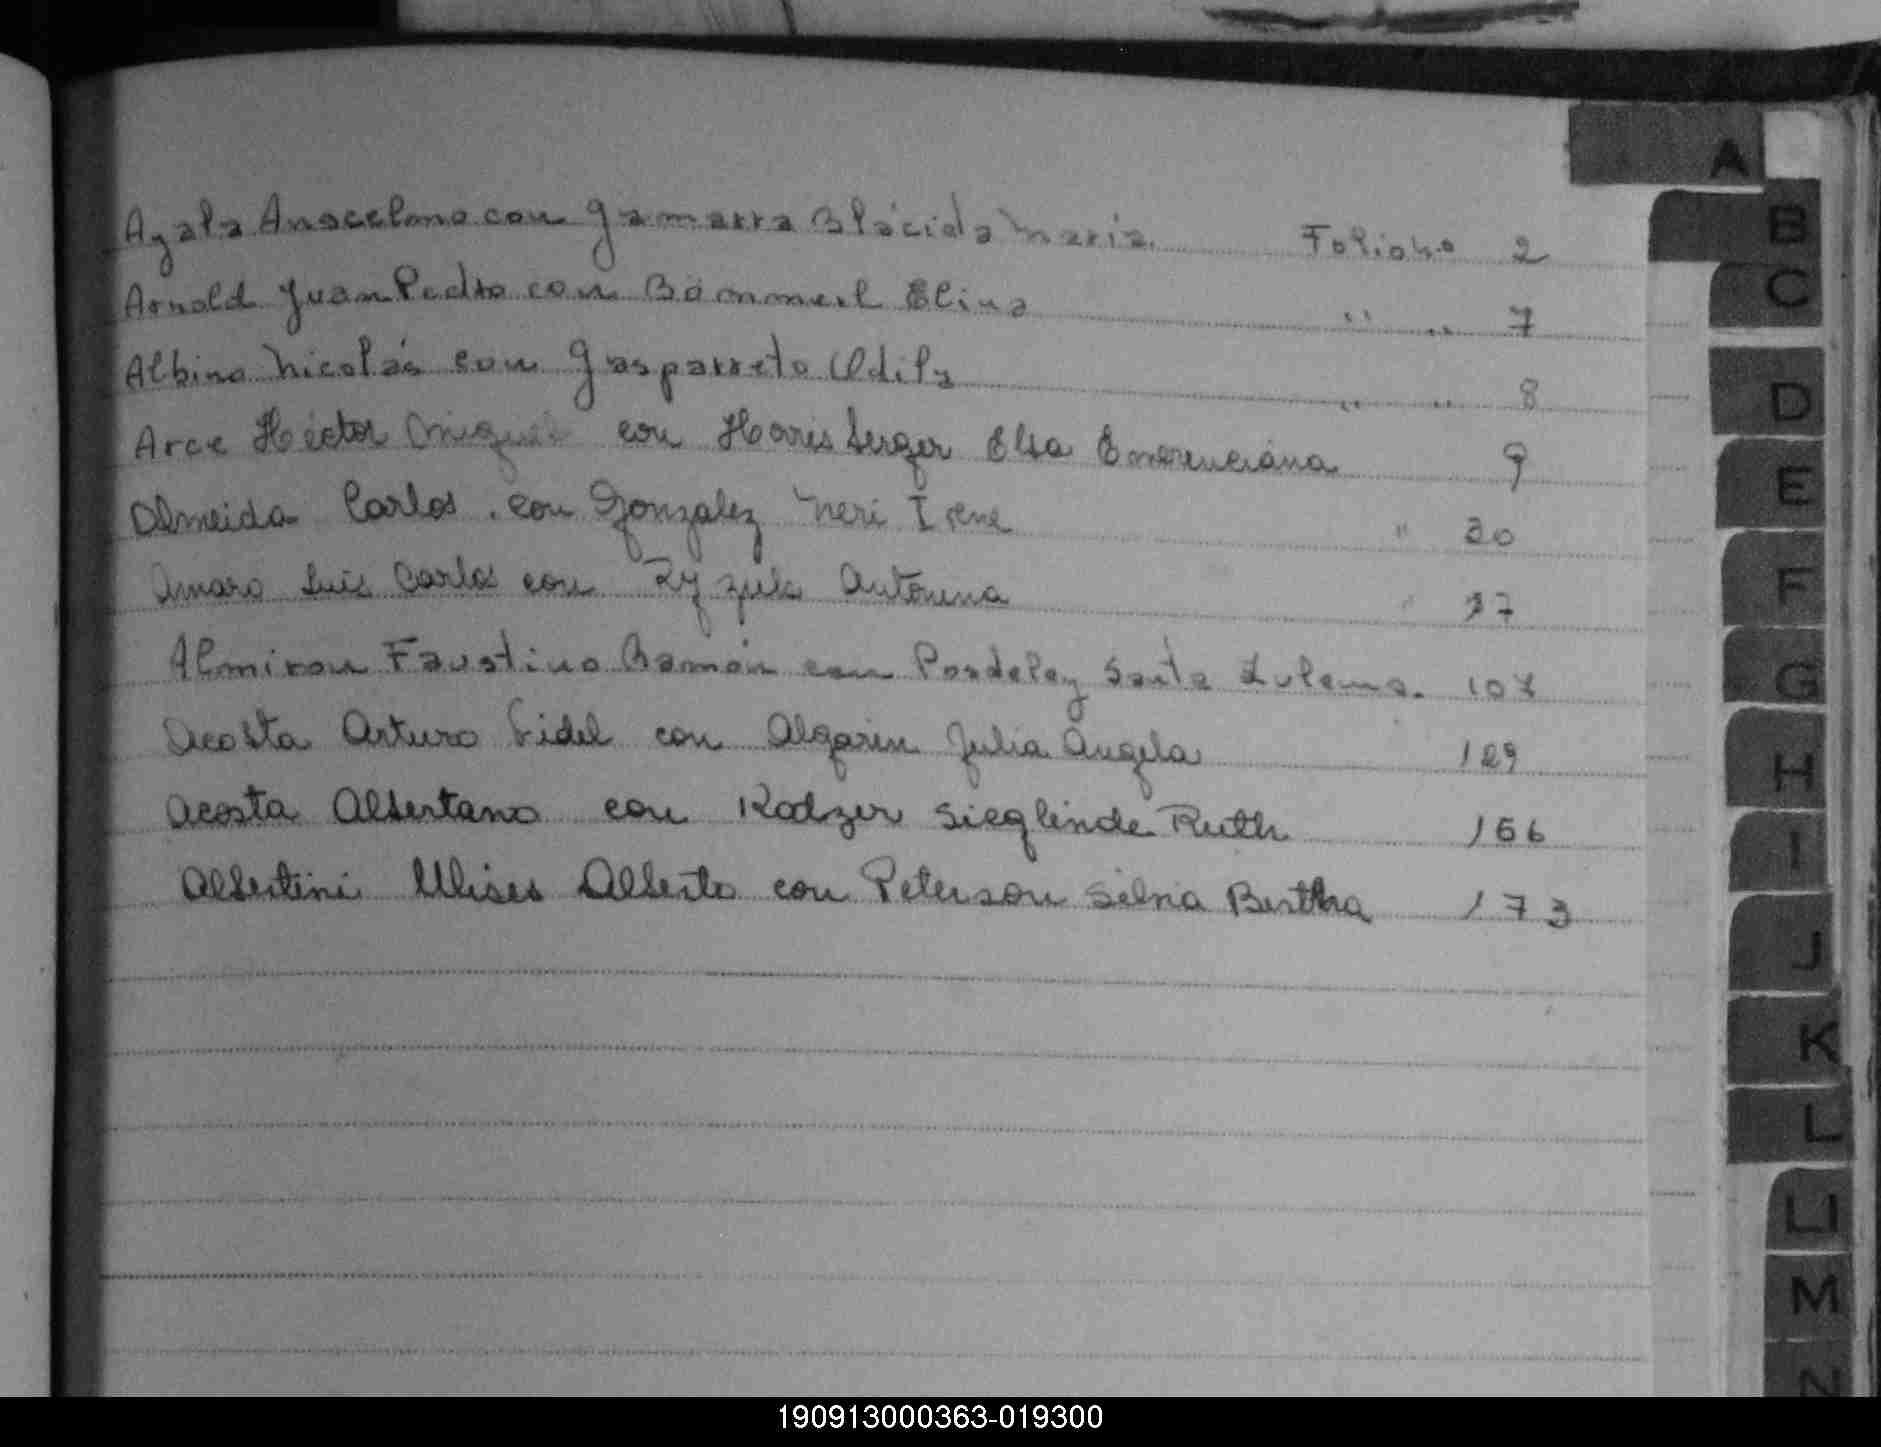 Ayala Anacelono con Gamarra Blácida María. Folio No 2
Arnold Juan Pedro con Bömmerl Elina " " 7
Albino Nicolás con Gasparreto Odila " " 8
Arce Héctor Miguel con Horrisberger Elsa Emerenciana 9
Almeida Carlos. con Gonzalez Neri Irene " 20
Amaro Luis Carlos con Antonina " 37
Almiron Faustino Ramón con Santa Zulema. 107
Acosta Arturo Fidel con Algarin Julia Angela 129
Acosta Albertano con Kodzer Sieglinde Ruth 166
Albertini Ulises Alberto con Peterson Silvia Bertha 173
A
B
C
D
E
F
G
H
I
J
K
L
Ll
M
N
190913000363-019300